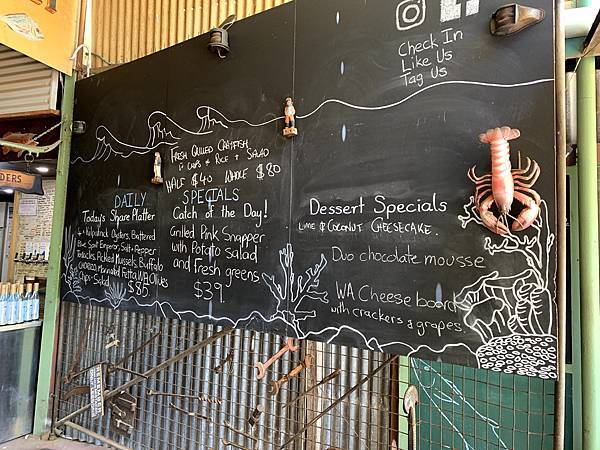 Check In
Like Us
Tag Us
Fresh Grilled Crayfish
CHIPS & RICE + SALAD
HALF $40 WHOLE $80
DAILY SPECIALS
Today's Share Platter
4 x Kilpatrick Oysters, Battered
Blue Spot Emperor, Salt + Pepper
Tentacles, Pickled Mussels, Buffalo
Chorizo, Marinated Fetta, WA Olives
Chips, Salad
$85
Catch of the Day!
Grilled Pink Snapper
with Potato salad
and Fresh greens
$39.
Dessert Specials
LIME & COCONUT CHEESECAKE.
Duo chocolate mousse
WA Cheese board
with crackers & grapes.
DERS